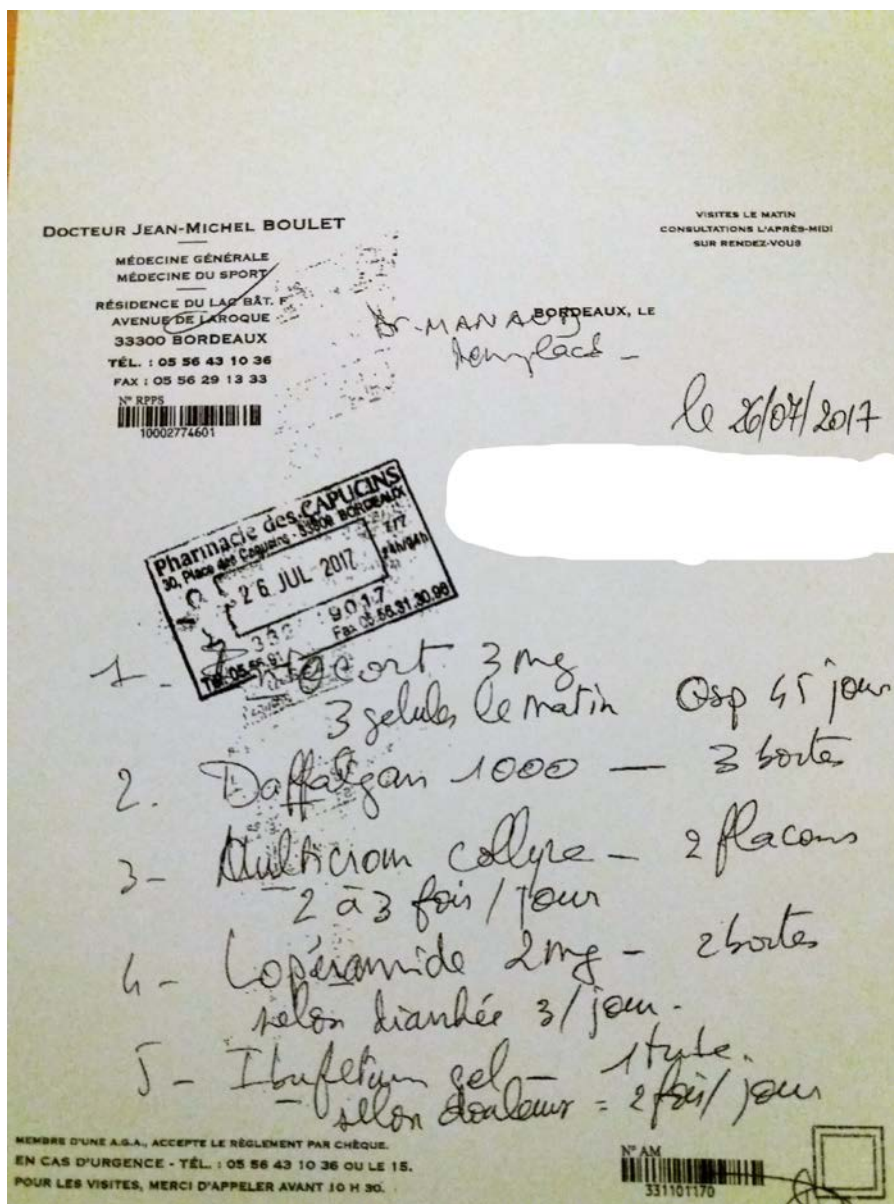 DOCTEUR JEAN-MICHEL BOULET
MÉDECINE GÉNÉRALE
MÉDECINE DU SPORT
RÉSIDENCE DU LAC BÂT. F
AVENUE DE LAROQUE
33300 BORDEAUX
TÉL. : 05 56 43 10 36
FAX : 05 56 29 13 33
N° RPPS
10002774601
VISITES LE MATIN
CONSULTATIONS L'APRÈS-MIDI
SUR RENDEZ-VOUS
BORDEAUX, LE
Dr
le 26/07/2017
Pharmacie des CAPUCINS
30, Place des Capucins - BORDEAUX
7/7
26 JUL 2017
24h/24h
332 9017
Tél. 05.56.91 Fax 05.56.31.30.98
1 - Entocort 3 mg
3 gelules le matin Qsp 45 jour
2. Daffalgan 1000 — 3 boites
3 - Multicrom collyre - 2 flacons
2 à 3 fois / jour
4 - Lopéramide 2mg - 2 boites
selon diarrhée 3/jour.
5 - Ibufetum gel - 1 tube.
selon douleurs = 2 fois/jour
MEMBRE D'UNE A.G.A., ACCEPTE LE RÈGLEMENT PAR CHÈQUE.
EN CAS D'URGENCE - TÉL. : 05 56 43 10 36 OU LE 15.
POUR LES VISITES, MERCI D'APPELER AVANT 10 H 30.
N° AM
331101170